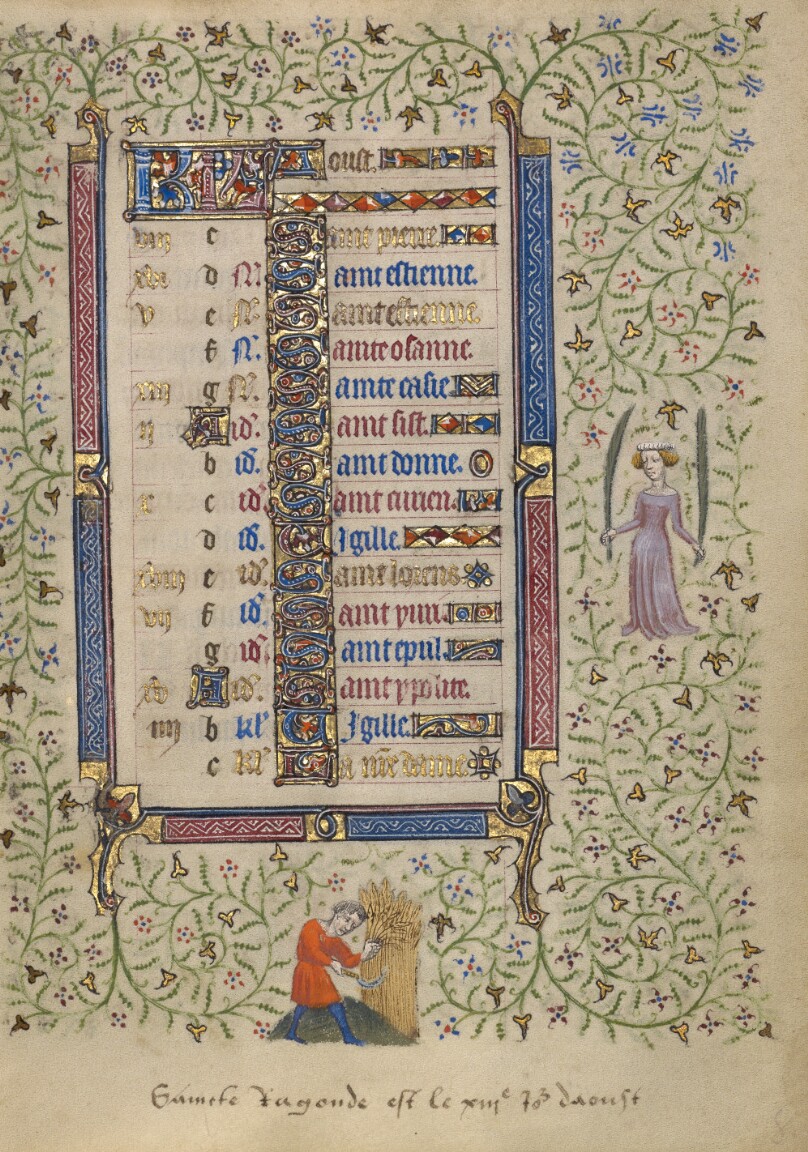 KL Aoust.
viij c Saint pierre.
xvi d N. Saint estienne.
v e N. Saint estienne.
f N. Sainte osanne.
xiij g N. Sainte casie
ij A id. Saint sist.
b id. Saint donne.
x c id. Saint
d id. Vigille.
xviij e id. Saint lorens
vij f id. Saint
g id. Saint
xv A id. Saint ypolite.
iiij b kl Vigille.
c kl La nre dame
Saincte Ragonde est le xiije Jo daoust